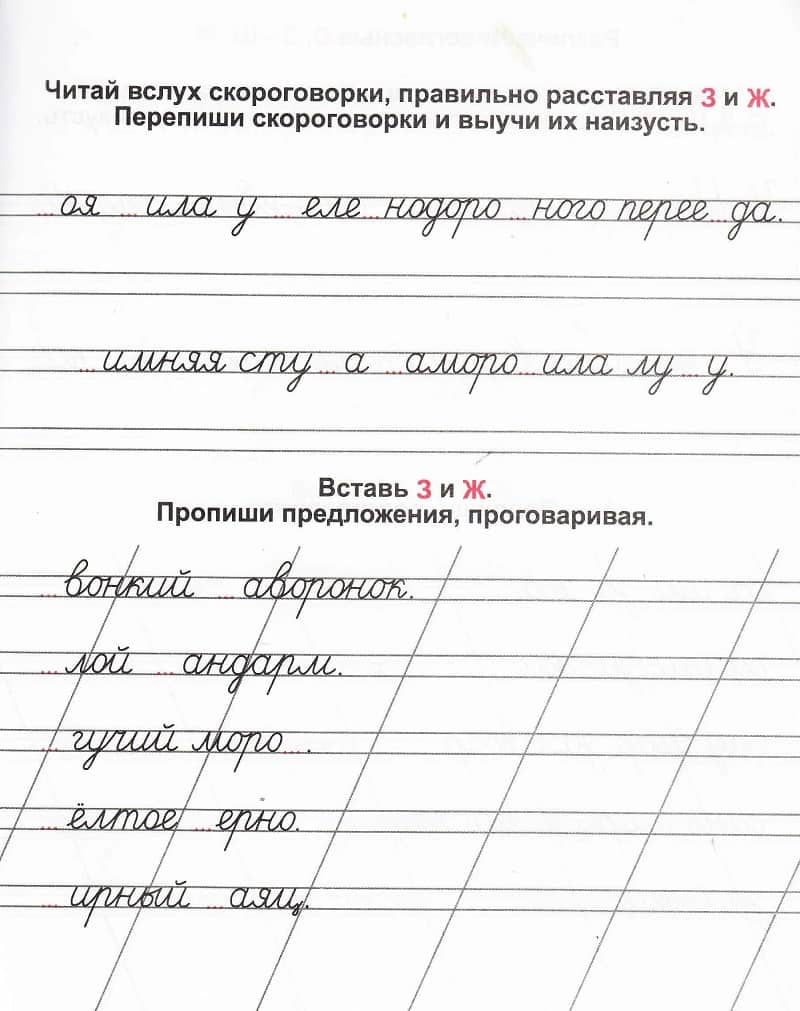 Читай вслух скороговорки, правильно расставляя З и Ж.
Перепиши скороговорки и выучи их наизусть.
...оя ...ила у ...еле...нодоро...ного перее...да.
...имняя сту...а ...аморо...ила лу...у.
Вставь З и Ж.
Пропиши предложения, проговаривая.
...вонкий ...аворонок.
...лой ...андарм.
...гучий моро... .
...ёлтое ...ерно.
...ирный ...аяц.